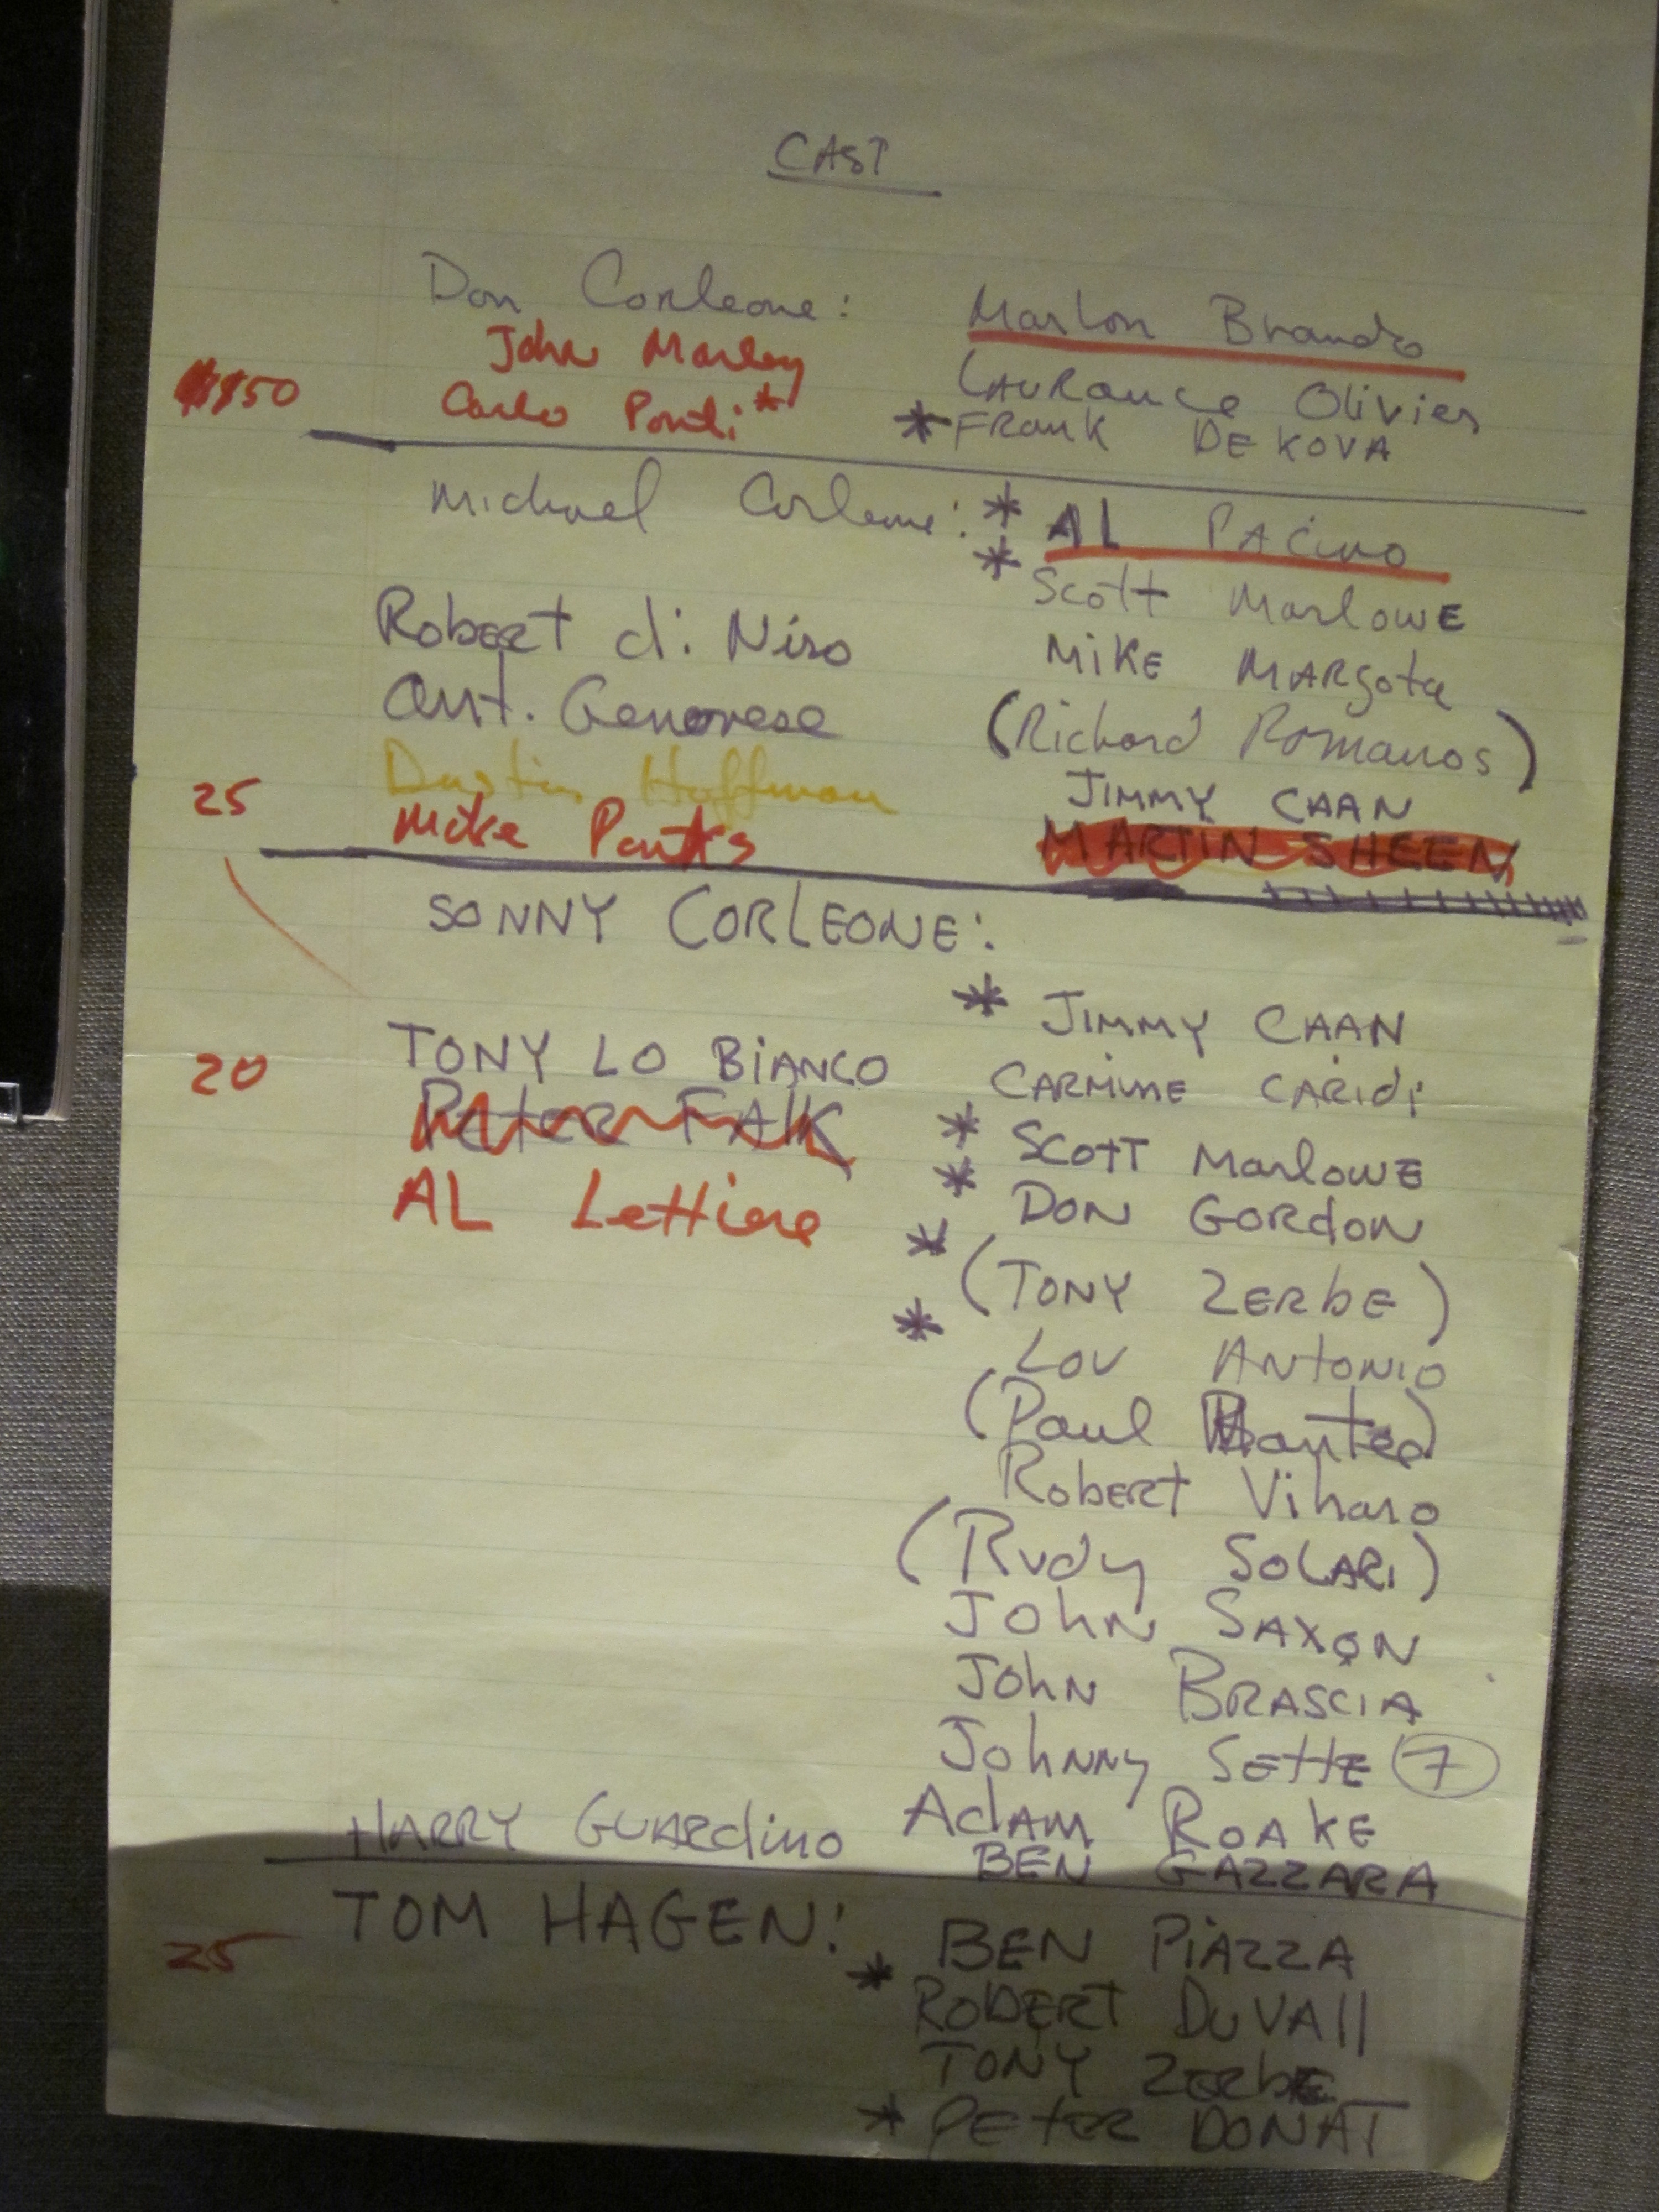 CAST
Don Corleone: Marlon Brando
John Marley
LAURance Olivier
150 Carlo Ponti*
*FRank DEKOVA
Michael Corleone: * AL PACino
* Scott MarlowE
Robert di Niro
MiKE MARgotta
Ant. Genovese
(Richard Romanos)
Dustin Hoffman
JIMMY CAAN
25 Mike Parks
MARTIN SHEEN
SONNY CORLEONE:
* JIMMY CAAN
20 TONY LO BiANCO
CARMiNE CARidi
PEtER FAlK
* SCOTT MarlowE
AL Lettiere
* DON GORdON
* (TONY ZERbE)
* LOU ANtONiO
(Paul Mantee)
RobERT Viharo
(Rudy SOLARi)
JOhN SAXON
JOhN BRASCIA
JohNNy SEttE 7
AdAM ROAKE
HARRY GUARdino
BEN GAZZARA
TOM HAGEN: BEN PiAZZA
25
* ROBERT DuVAll
TONY ZERbE
* PETER DONAT